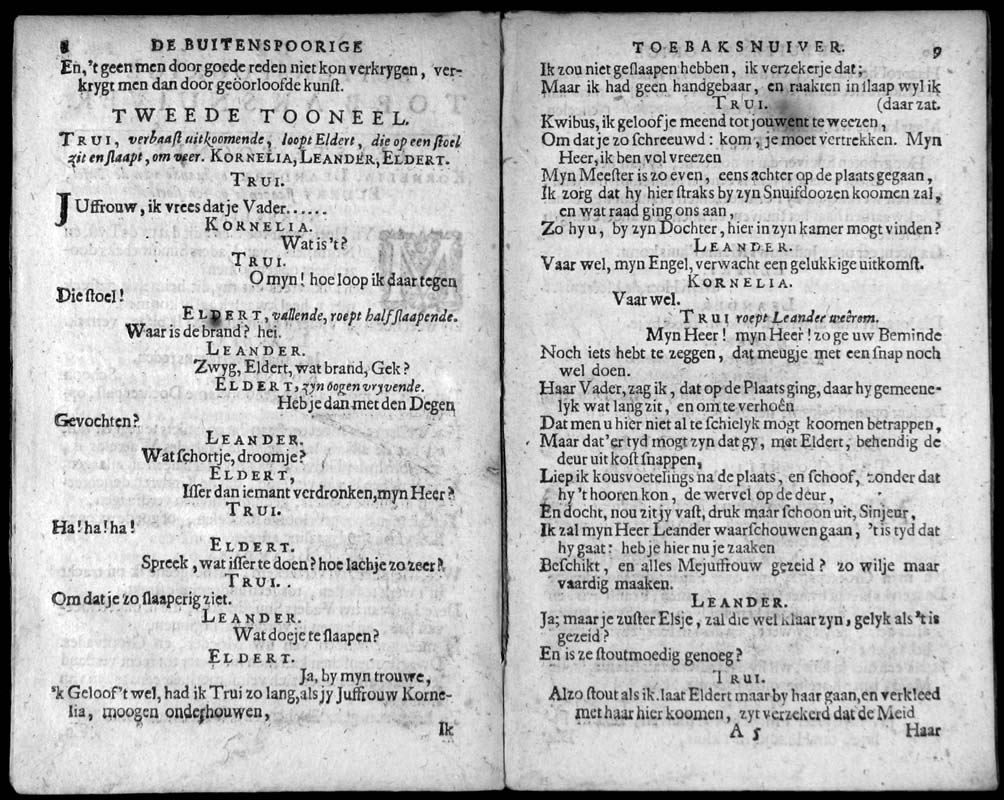 8 DE BUITENSPOORIGE
En, 't geen men door goede reden niet kon verkrygen, ver-
krygt men dan door geöorloofde kunst.
TWEEDE TOONEEL.
TRUI, verbaast uitkoomende, loopt Eldert, die op een stoel
zit en slaapt, om veer. KORNELIA, LEANDER, ELDERT.
TRUI.
JUffrouw, ik vrees dat je Vader......
KORNELIA.
Wat is't?
TRUI.
O myn! hoe loop ik daar tegen
Die stoel!
ELDERT, vallende, roept half slaapende.
Waar is de brand? hei.
LEANDER.
Zwyg, Eldert, wat brand, Gek?
ELDERT, zyn oogen vryvende.
Heb je dan met den Degen
Gevochten?
LEANDER.
Wat schortje, droomje?
ELDERT,
Isser dan iemant verdronken, myn Heer?
TRUI.
Ha! ha! ha!
ELDERT.
Spreek, wat isser te doen? hoe lachje zo zeer?
TRUI.
Om dat je zo slaaperig ziet.
LEANDER.
Wat doeje te slaapen?
ELDERT.
Ja, by myn trouwe,
'k Geloof't wel, had ik Trui zo lang, als jy Juffrouw Korne-
lia, moogen onderhouwen,
Ik
TOEBAKSNUIVER. 9
Ik zou niet geslaapen hebben, ik verzekerje dat;
Maar ik had geen handgebaar, en raakten in slaap wyl ik
TRUI. (daar zat.
Kwibus, ik geloof je meend tot jouwent te weezen,
Om dat je zo schreeuwd: kom, je moet vertrekken. Myn
Heer, ik ben vol vreezen
Myn Meester is zo even, eens achter op de plaats gegaan,
Ik zorg dat hy hier straks by zyn Snuifdoozen koomen zal,
en wat raad ging ons aan,
Zo hy u, by zyn Dochter, hier in zyn kamer mogt vinden?
LEANDER.
Vaar wel, myn Engel, verwacht een gelukkige uitkomst.
KORNELIA.
Vaar wel.
TRUI roept Leander weêrom.
Myn Heer! myn Heer! zo ge uw Beminde
Noch iets hebt te zeggen, dat meugje met een snap noch
wel doen.
Haar Vader, zag ik, dat op de Plaats ging, daar hy gemeene-
lyk wat lang zit, en om te verhoên
Dat men u hier niet al te schielyk mogt koomen betrappen,
Maar dat'er tyd mogt zyn dat gy, met Eldert, behendig de
deur uit kost snappen,
Liep ik kousvoetelings na de plaats, en schoof, zonder dat
hy 't hooren kon, de wervel op de deur,
En docht, nou zit jy vast, druk maar schoon uit, Sinjeur,
Ik zal myn Heer Leander waarschouwen gaan, 't is tyd dat
hy gaat: heb je hier nu je zaaken
Beschikt, en alles Mejuffrouw gezeid? zo wilje maar
vaardig maaken.
LEANDER.
Ja; maar je zuster Elsje, zal die wel klaar zyn, gelyk als 't is
gezeid?
En is ze stoutmoedig genoeg?
TRUI.
Alzo stout als ik. laat Eldert maar by haar gaan, en verkleed
met haar hier koomen, zyt verzekerd dat de Meid
A 5 Haar